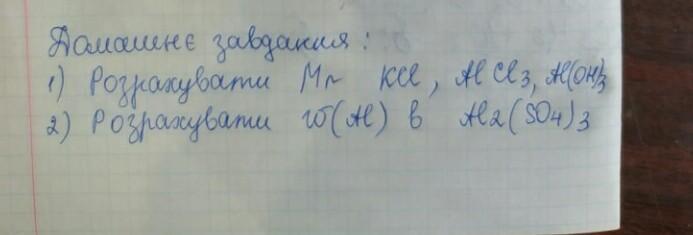 Домашнє завдання:
1) Розрахувати Mr KCl, AlCl3, Al(OH)3
2) Розрахувати w(Al) в Al2(SO4)3